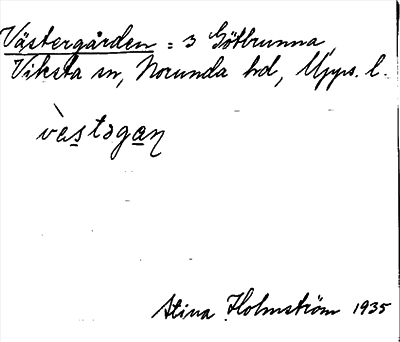 Västergården = 3 Götbrunna,
Viksta sn, Norunda hd, Upps. l.
vὲstəgan̩
Stina Holmström 1935